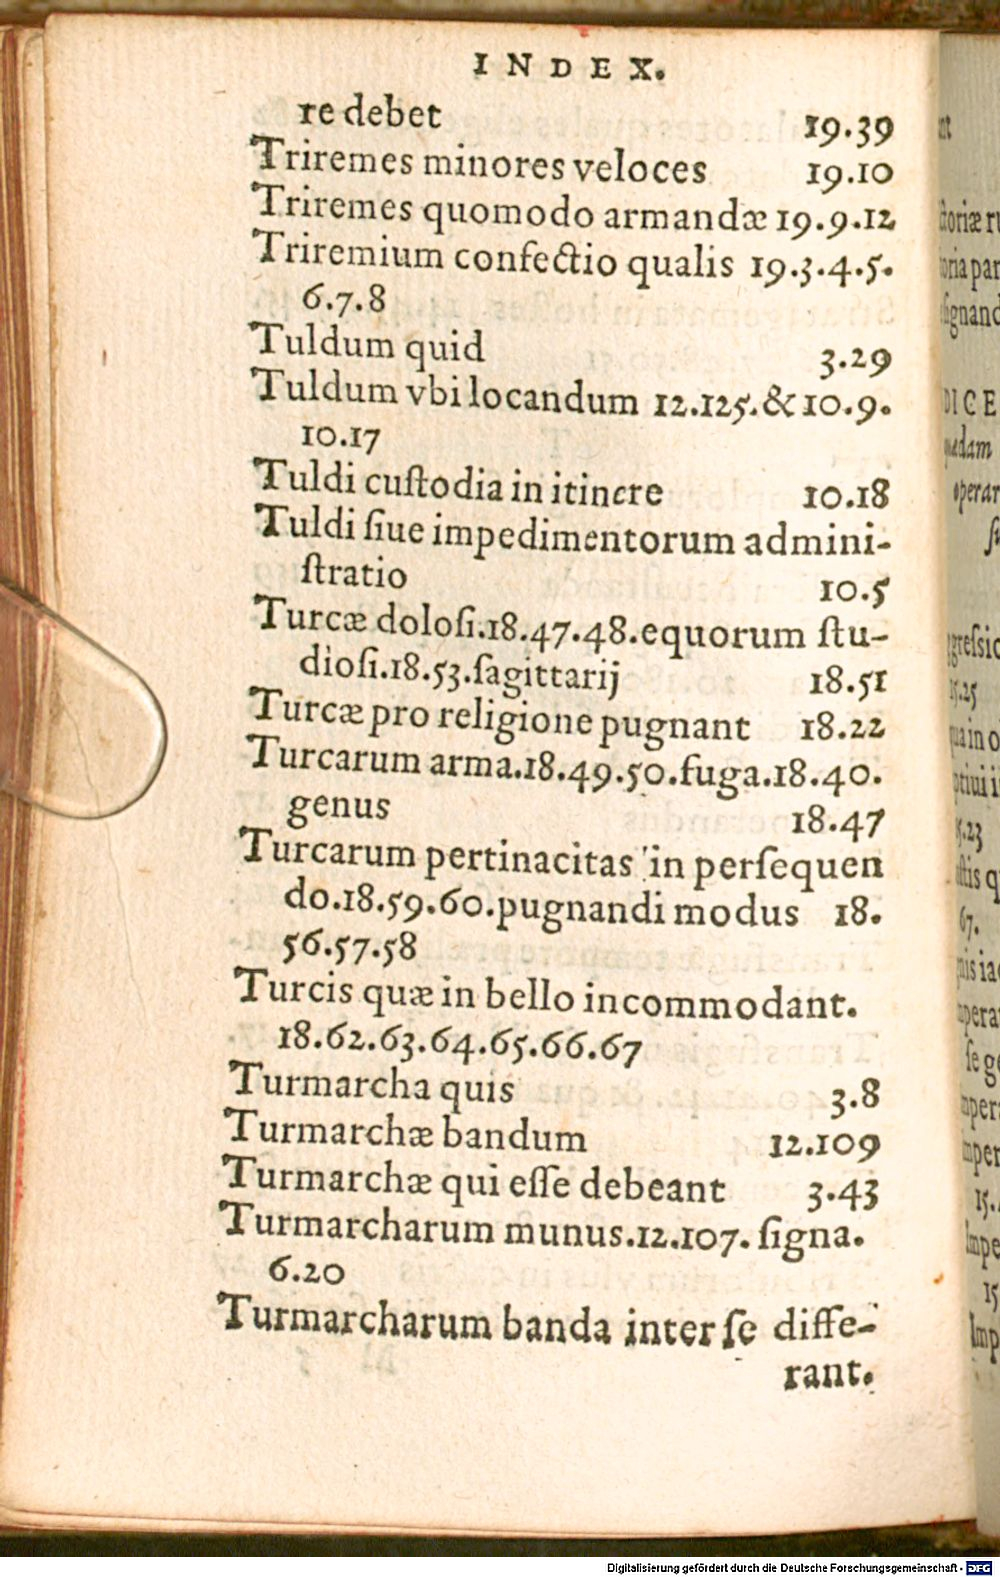 INDEX.
re debet 19.39
Triremes minores veloces 19.10
Triremes quomodo armandæ 19.9.12
Triremium confectio qualis 19.3.4.5.
6.7.8
Tuldum quid 3.29
Tuldum vbi locandum 12.125.&10.9.
10.17
Tuldi cuſtodia in itinere 10.18
Tuldi ſiue impedimentorum admini-
ſtratio 10.5
Turcæ doloſi.18.47.48.equorum ſtu-
dioſi.18.53.ſagittarij 18.51
Turcæ pro religione pugnant 18.22
Turcarum arma.18.49.50.fuga.18.40.
genus 18.47
Turcarum pertinacitas in perſequen
do.18.59.60.pugnandi modus 18.
56.57.58
Turcis quæ in bello incommodant.
18.62.63.64.65.66.67
Turmarcha quis 3.8
Turmarchæ bandum 12.109
Turmarchæ qui eſſe debeant 3.43
Turmarcharum munus.12.107. ſigna.
6.20
Turmarcharum banda inter ſe diffe-
rant.
Digitalisierung gefördert durch die Deutsche Forschungsgemeinschaft - DFG